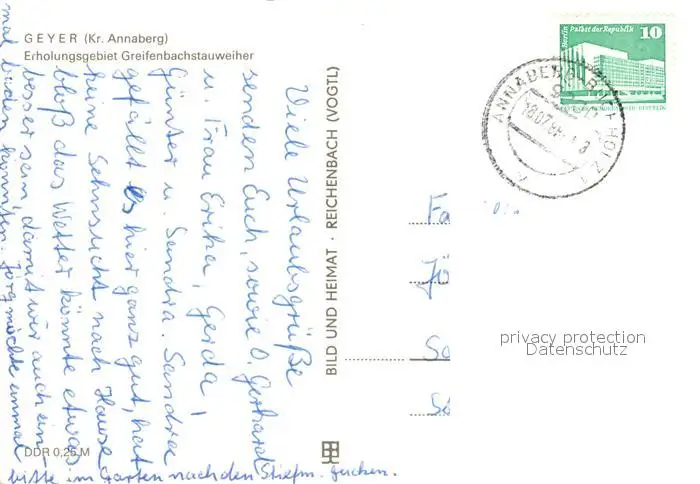 GEYER (Kr. Annaberg)
Erholungsgebiet Greifenbachstauweiher
Viele Urlaubsgrüße
senden Euch, sowie O. Gerhard
u. Frau Erika, Gerda,
Günter u. Sandra. Sandra
gefällt es hier ganz gut, hat
keine Sehnsucht nach Hause
bloß das Wetter könnte etwas
besser sein, damit wir auch ein-
mal baden könnten. Jörg möchte einmal
bitte im Garten nach den Stiefm. gucken.
DDR 0,25 M
BILD UND HEIMAT · REICHENBACH (VOGTL)
Berlin Palast der Republik
10
Fa
Jö
So
privacy protection
Datenschutz